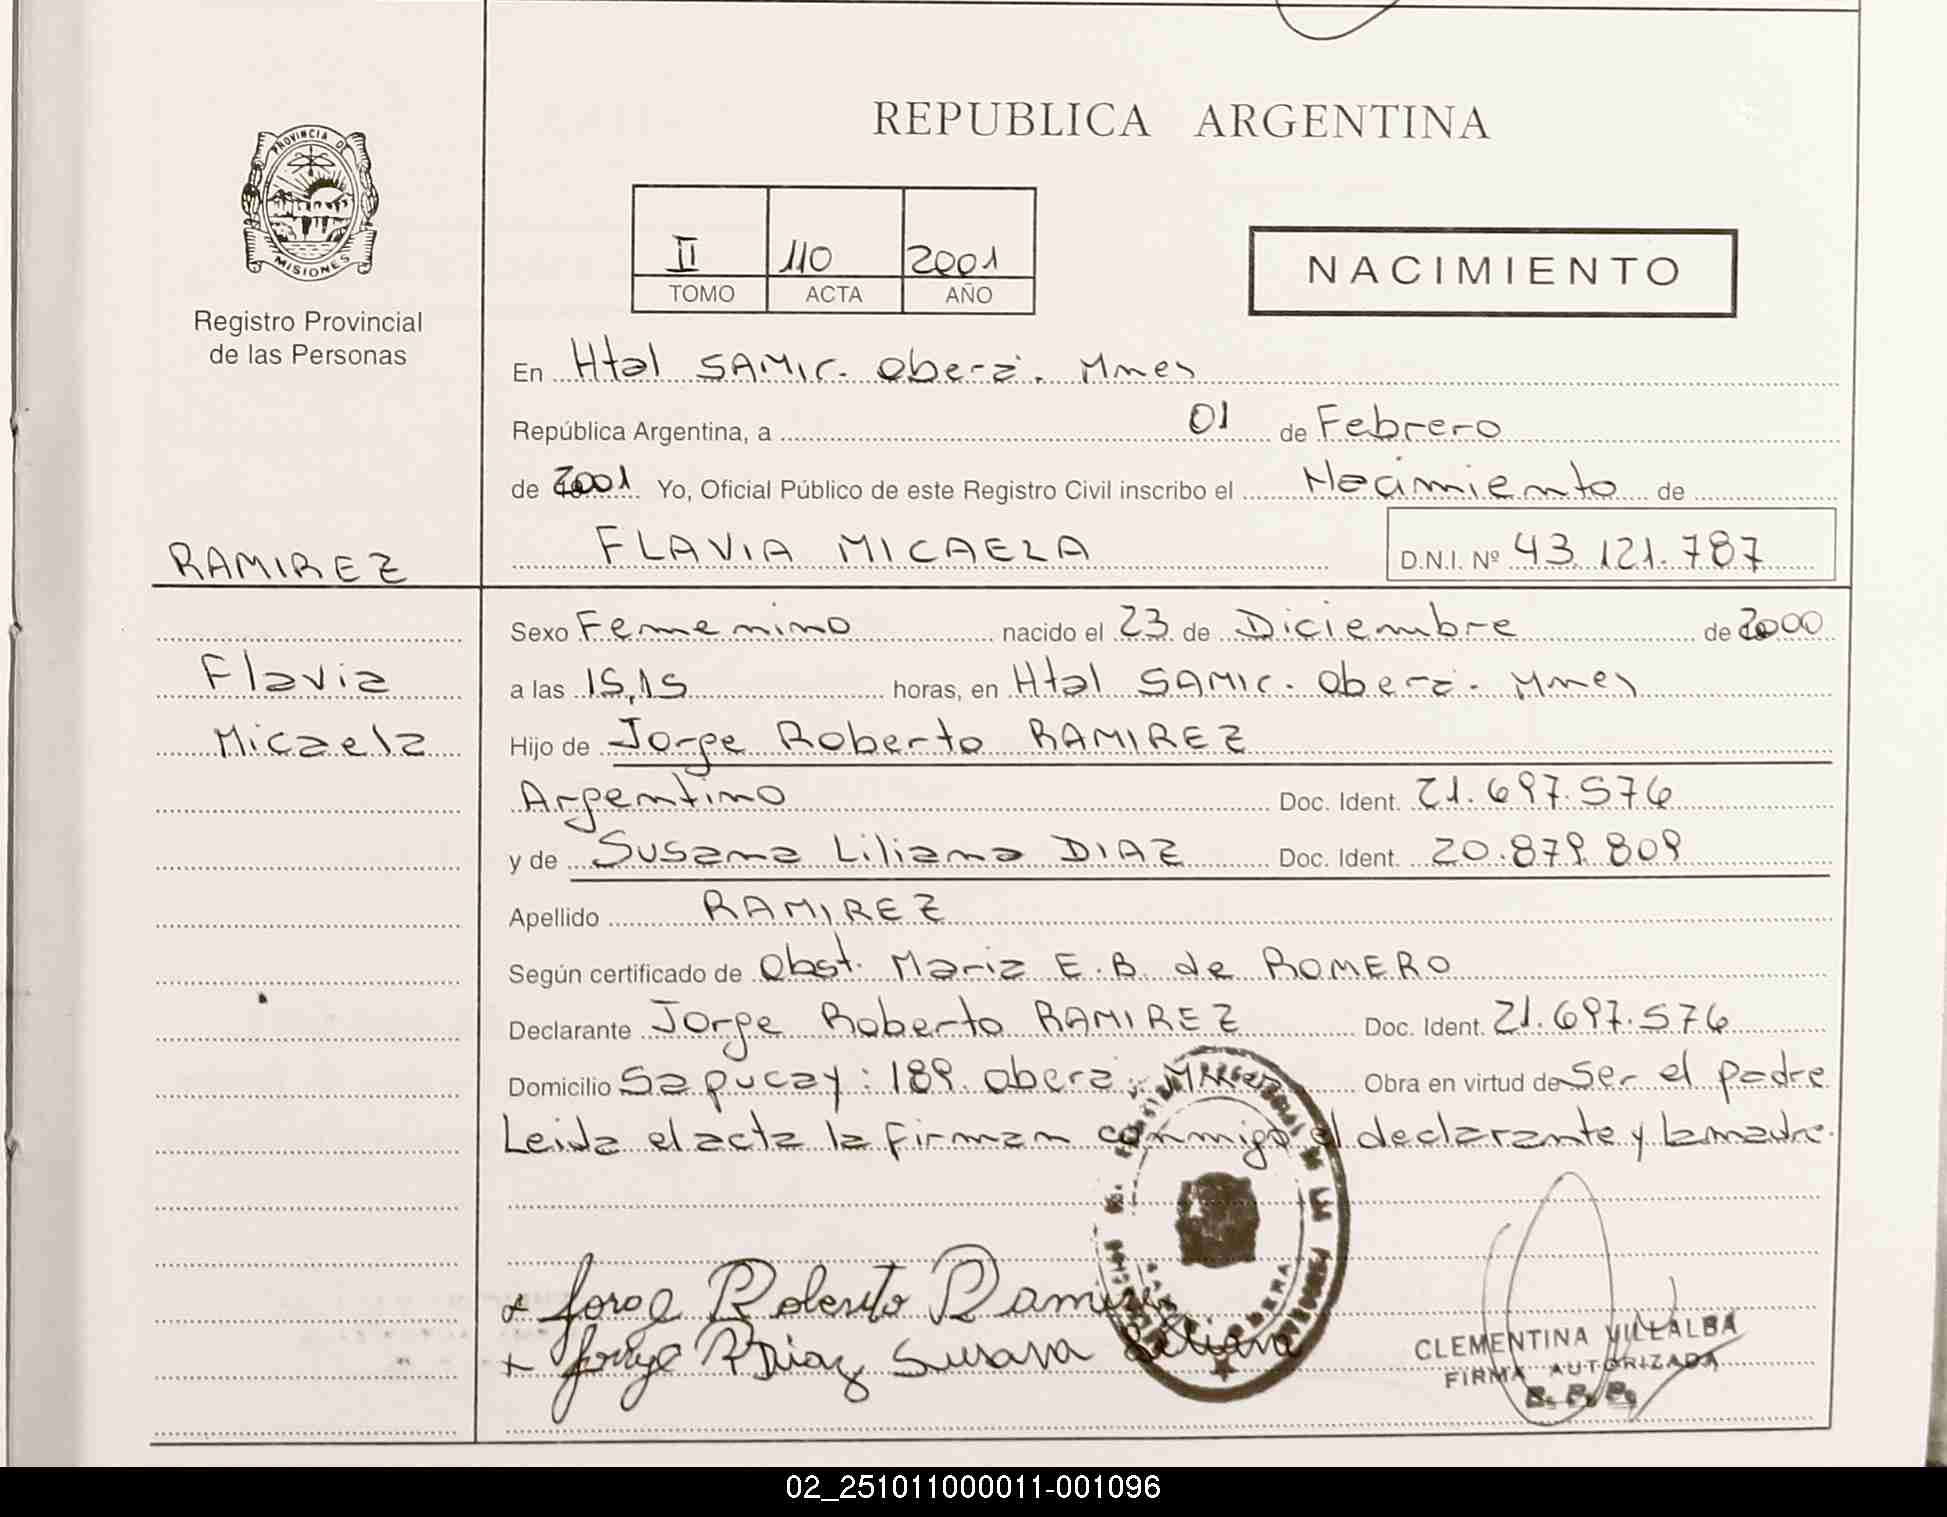 REPUBLICA ARGENTINA
PROVINCIA DE
MISIONES
Registro Provincial
de las Personas
II 110 2001
TOMO ACTA AÑO
NACIMIENTO
En Htal SAMIC. Oberá. Mnes
República Argentina, a 01 de Febrero
de 2001 Yo, Oficial Público de este Registro Civil inscribo el Nacimiento de
RAMIREZ
FLAVIA MICAELA D.N.I. Nº 43.121.787
Flavia
Micaela
Sexo Femenino nacido el 23 de Diciembre de 2000
a las 15,15 horas, en Htal SAMIC. Oberá. Mnes
Hijo de Jorge Roberto RAMIREZ
Argentino Doc. Ident. 21.697.576
y de Susana Liliana DIAZ Doc. Ident. 20.879.809
Apellido RAMIREZ
Según certificado de Obst. Maria E.B. de ROMERO
Declarante Jorge Roberto RAMIREZ Doc. Ident. 21.697.576
Domicilio Sapucay: 189. Oberá. Obra en virtud de Ser el padre
Leida el acta la firman conmigo el declarante y la madre.
Jorge Roberto Ramirez
Diaz Susana Liliana
CLEMENTINA VILLALBA
FIRMA AUTORIZADA
02_251011000011-001096